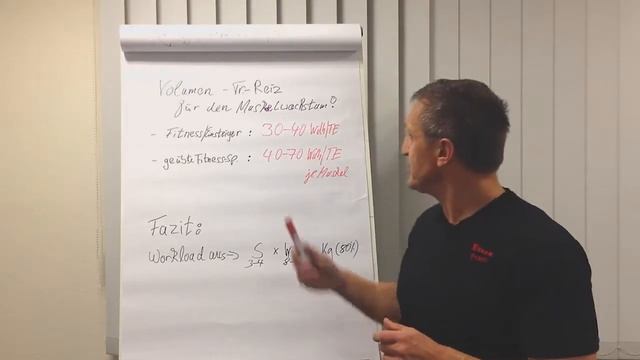 Volumen - Tr-Reiz
für den Muskelwachstum?
- Fitness Einsteiger : 30-40 Wdh/TE
- geübte Fitness-Sp : 40-70 Wdh/TE
je Muskel
Fazit:
Workload aus → S × Kg (80%)
3-4